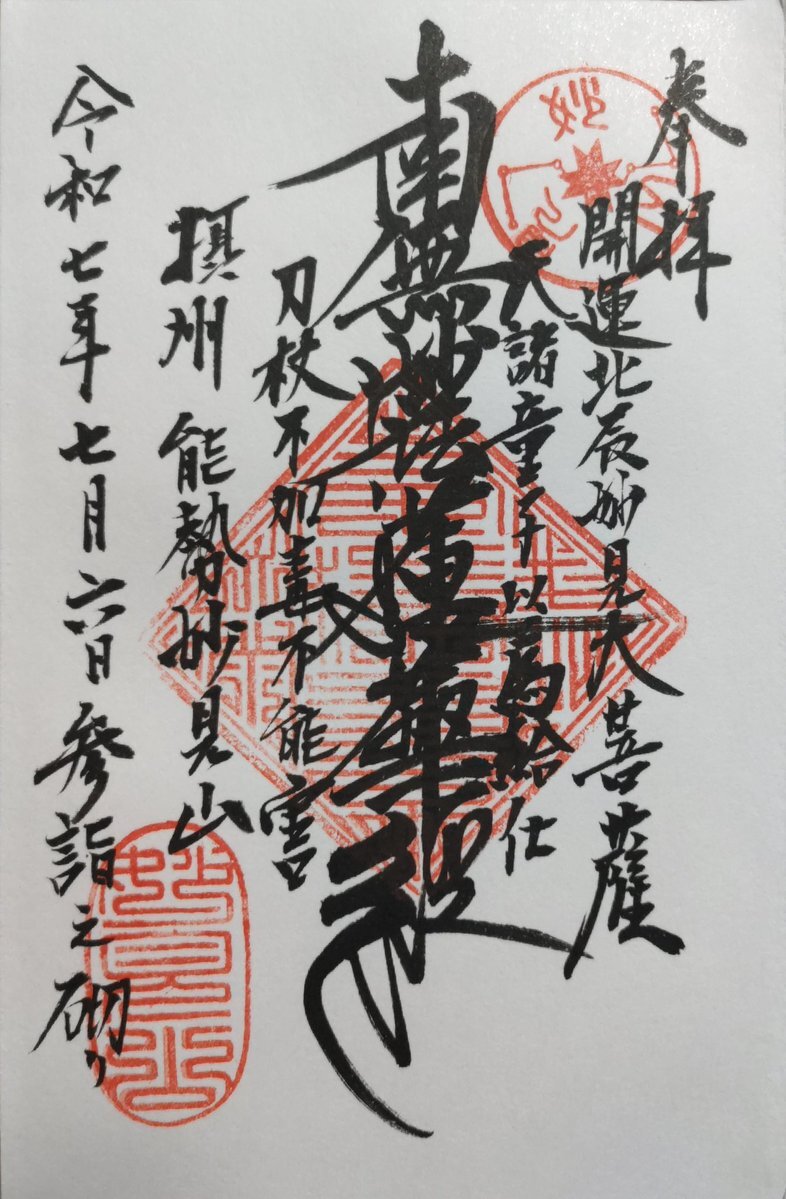 奉拝
開運北辰妙見大菩薩
天諸童子以為給仕
南無妙法蓮華経
刀杖不加毒不能害
摂州 能勢妙見山
令和七年七月六日参詣之砌り
妙見山